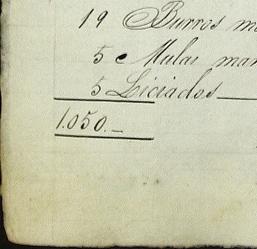 19 Burros m
5 Mulas man
5 Liciados
1.050.-